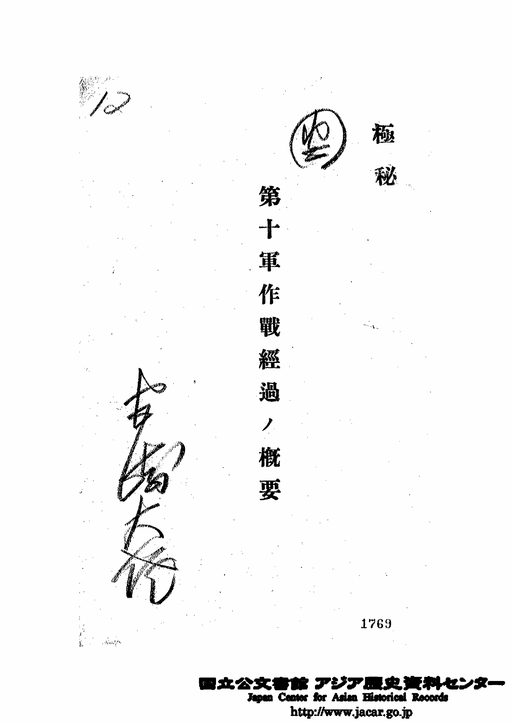 極秘
第十軍作戰經過ノ概要
12
大佐
1769
国立公文書館 アジア歴史資料センター
Japan Center for Asian Historical Records
http://www.jacar.go.jp